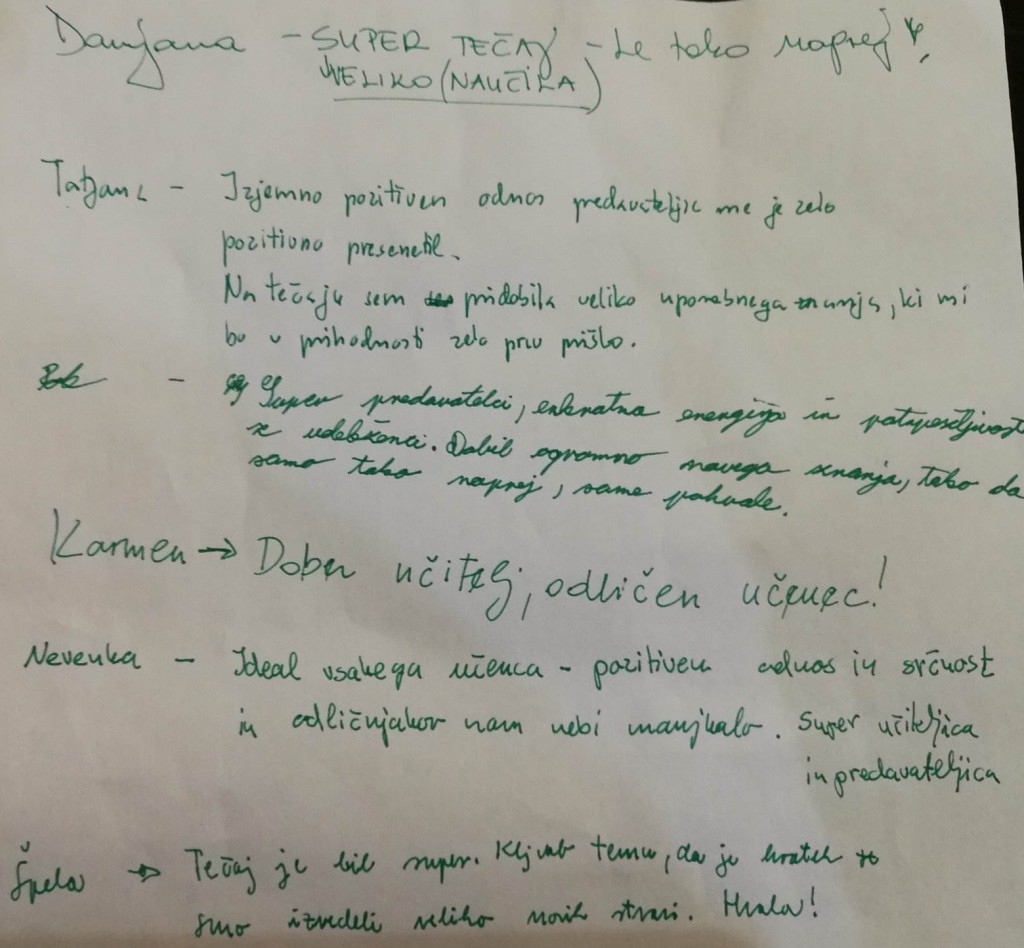 Damjana - SUPER TEČAJ - Le tako naprej
VELIKO (NAUČILA)
Tatjana - Izjemno pozitiven odnos predavateljic me je zelo
pozitivno presenetil.
Na tečaju sem pridobila veliko uporabnega znanja, ki mi
bo v prihodnosti zelo prav prišlo.
Rok - Super predavatelci, enkratna energija in potrpežljivost
z udeleženci. Dobil ogromno novega znanja, tako da
samo tako naprej, same pohvale.
Karmen → Dober učitelj, odličen učenec!
Nevenka - Ideal vsakega učenca - pozitiven odnos in srčnost
in odličnjakov nam nebi manjkalo. Super učiteljica
in predavateljica
Špela → Tečaj je bil super. Kljub temu, da je kratek
smo izvedeli veliko novih stvari. Hvala!